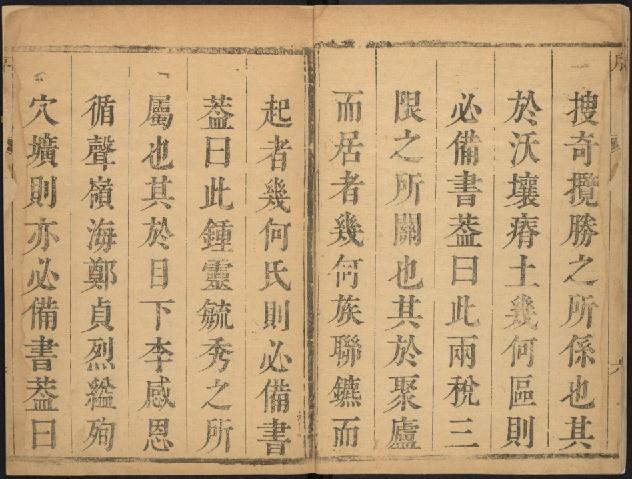 序 六
搜奇攬勝之所係也其
於沃壤瘠土幾何區則
必備書葢曰此兩稅三
限之所關也其於聚廬
而居者幾何族聯鑣而
起者幾何氏則必備書
葢曰此鍾靈毓秀之所
屬也其於日下李感恩
循聲嶺海鄭貞烈縊殉
穴壙則亦必備書葢曰